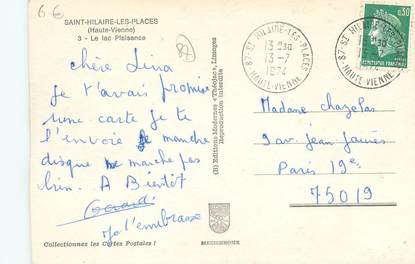 6€
SAINT-HILAIRE-LES-PLACES
(Haute-Vienne)
3 - Le lac Plaisance
87
chère Lina
Je t'avais promise
une carte je te
l'envoie manche
disque ne marche pas
bien. A Bientôt
Gérard
je t'embrasse
Collectionnez les Cartes Postales !
(B) Editions Modernes «Théojac», Limoges
Reproduction interdite
MODERCHROME
87-ST HILAIRE-LES-PLACES
13 H30
13-7
1974
HAUTE-VIENNE
87-ST HILAIRE-LES-PLACES
1974
HAUTE-VIENNE
0,30
REPUBLIQUE FRANÇAISE
Madame chazelas
9 av. jean jaurès
Paris 19e
75019